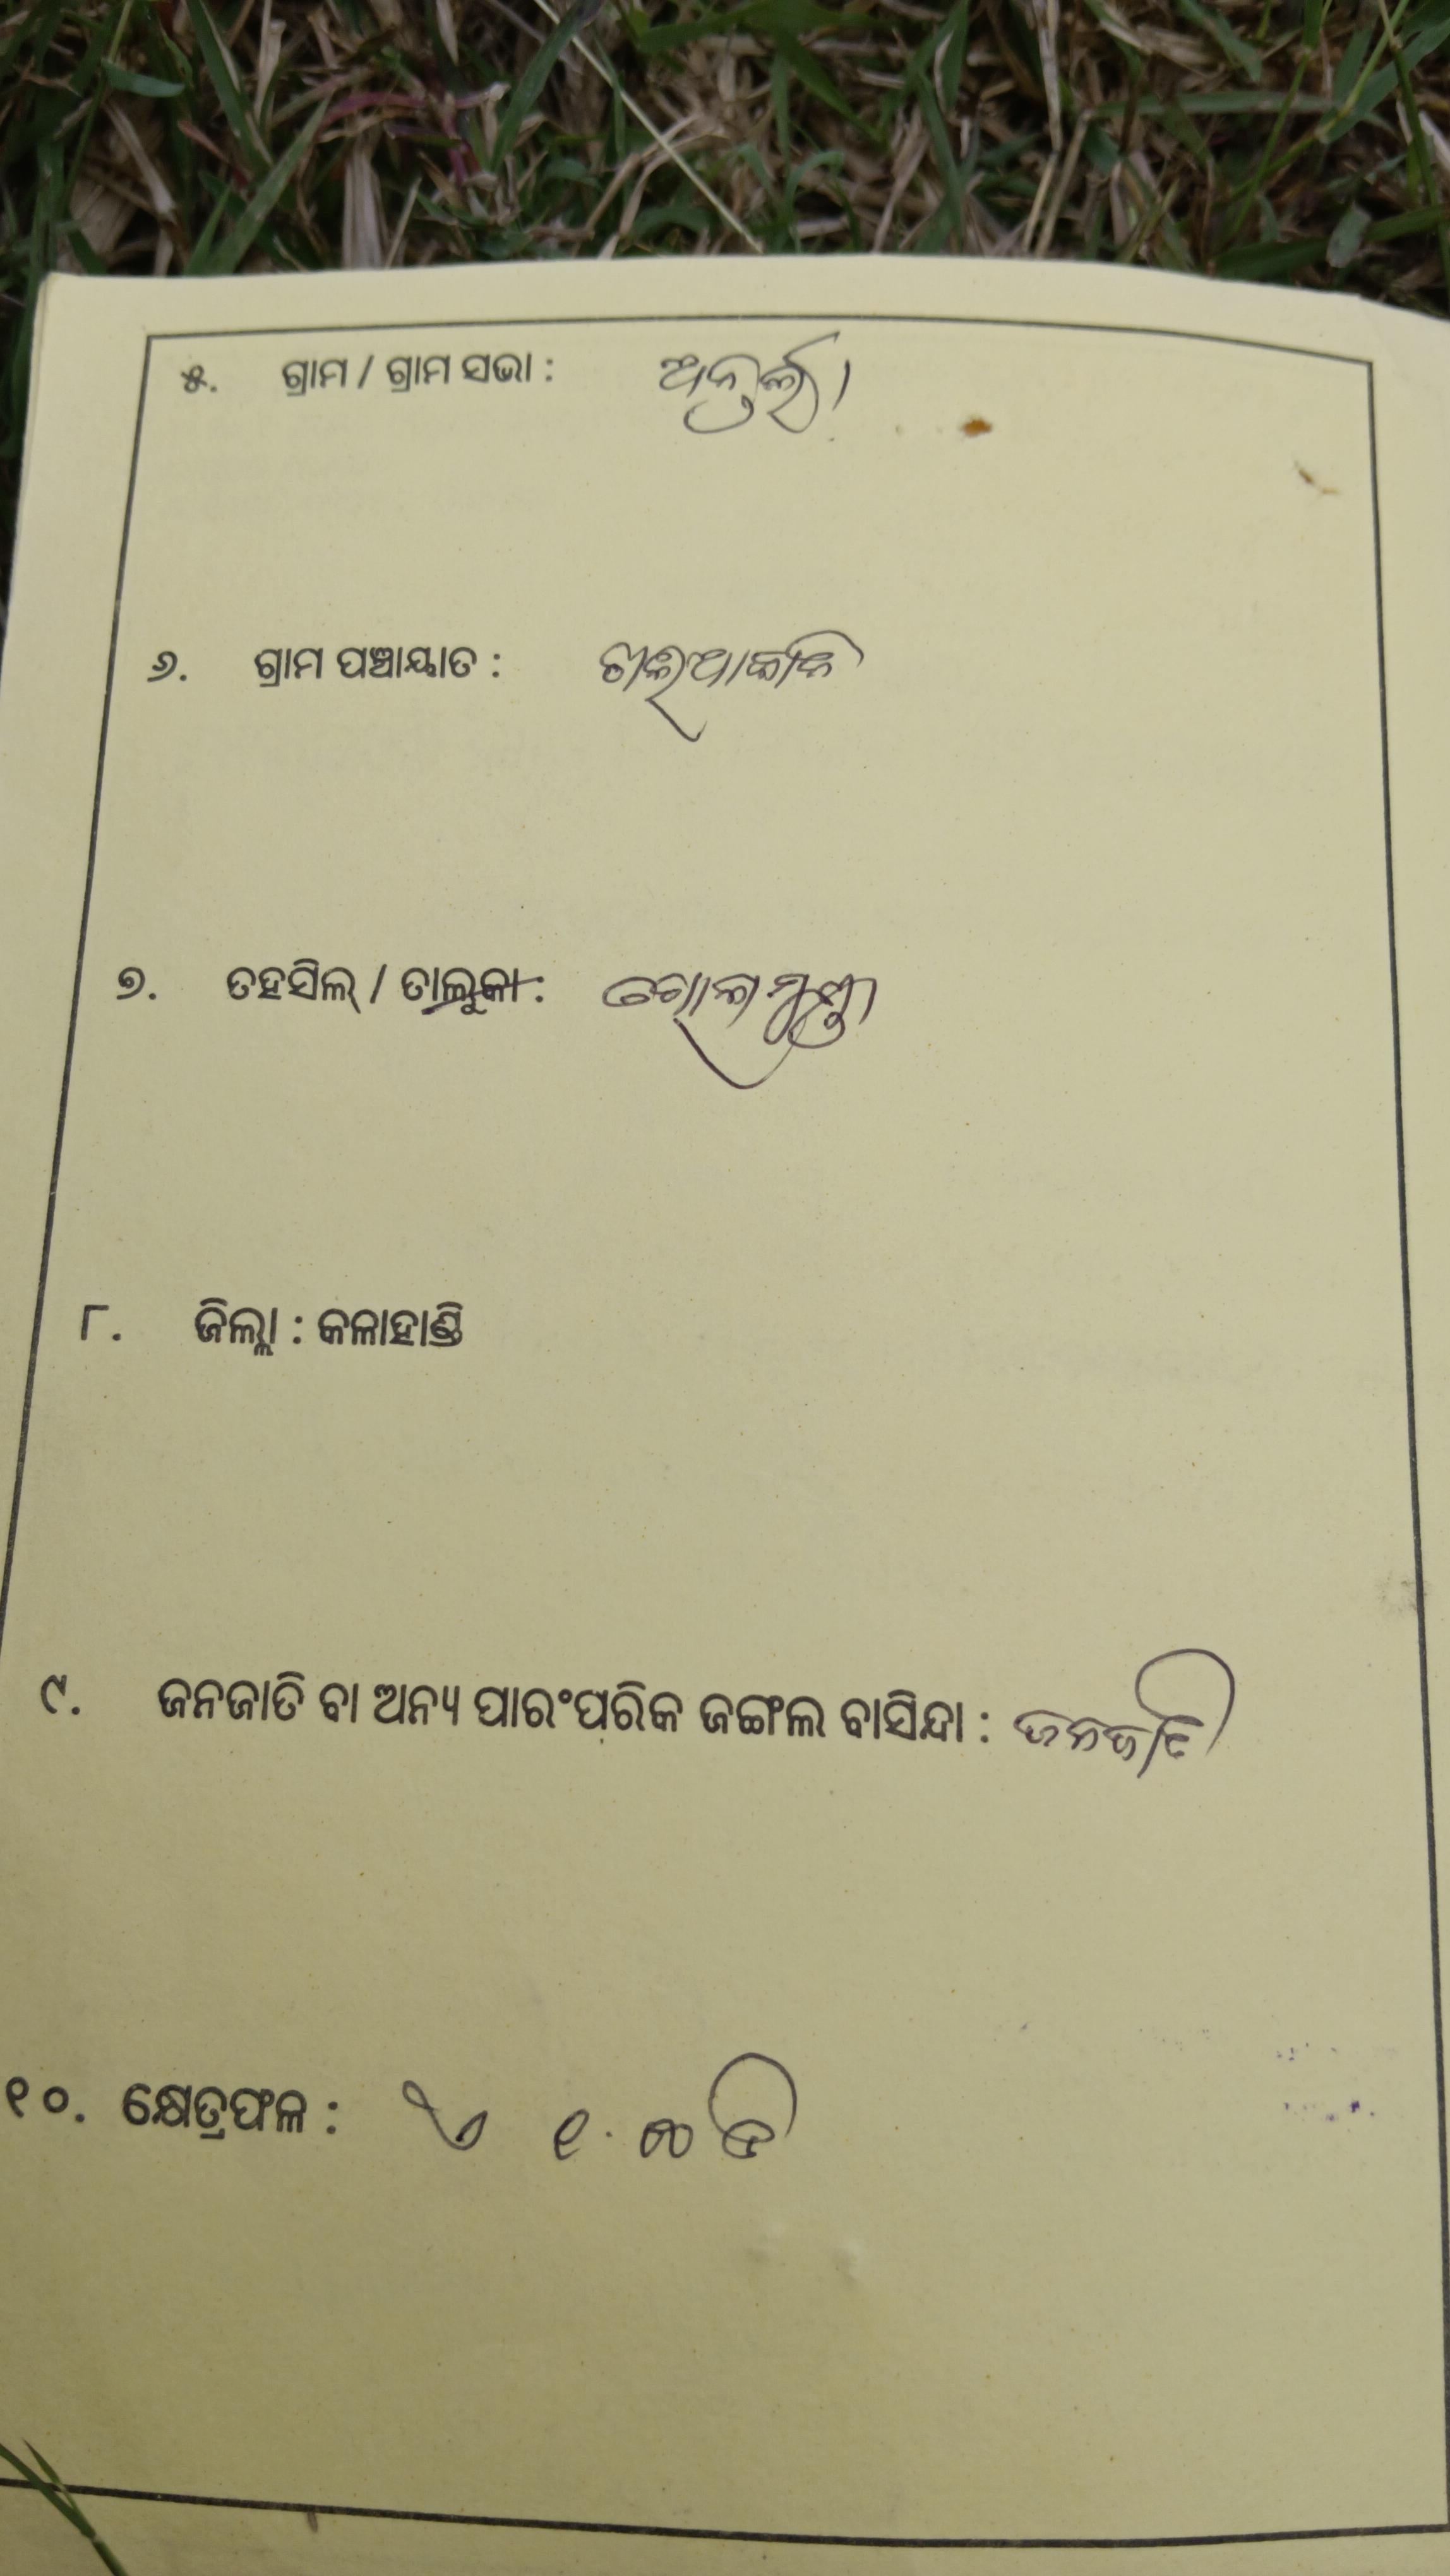 ୫. ଗ୍ରାମ / ଗ୍ରାମ ସଭା :
୬. ଗ୍ରାମ ପଞ୍ଚାୟାତ :
୭. ତହସିଲ୍ / ତାଲୁକା : ଗୋଲମୁଣ୍ଡା
୮. ଜିଲ୍ଲା : କଳାହାଣ୍ଡି
୯. ଜନଜାତି ବା ଅନ୍ୟ ପାରଂପରିକ ଜଙ୍ଗଲ ବାସିନ୍ଦା : ଜନଜାତି
୧୦. କ୍ଷେତ୍ରଫଳ :